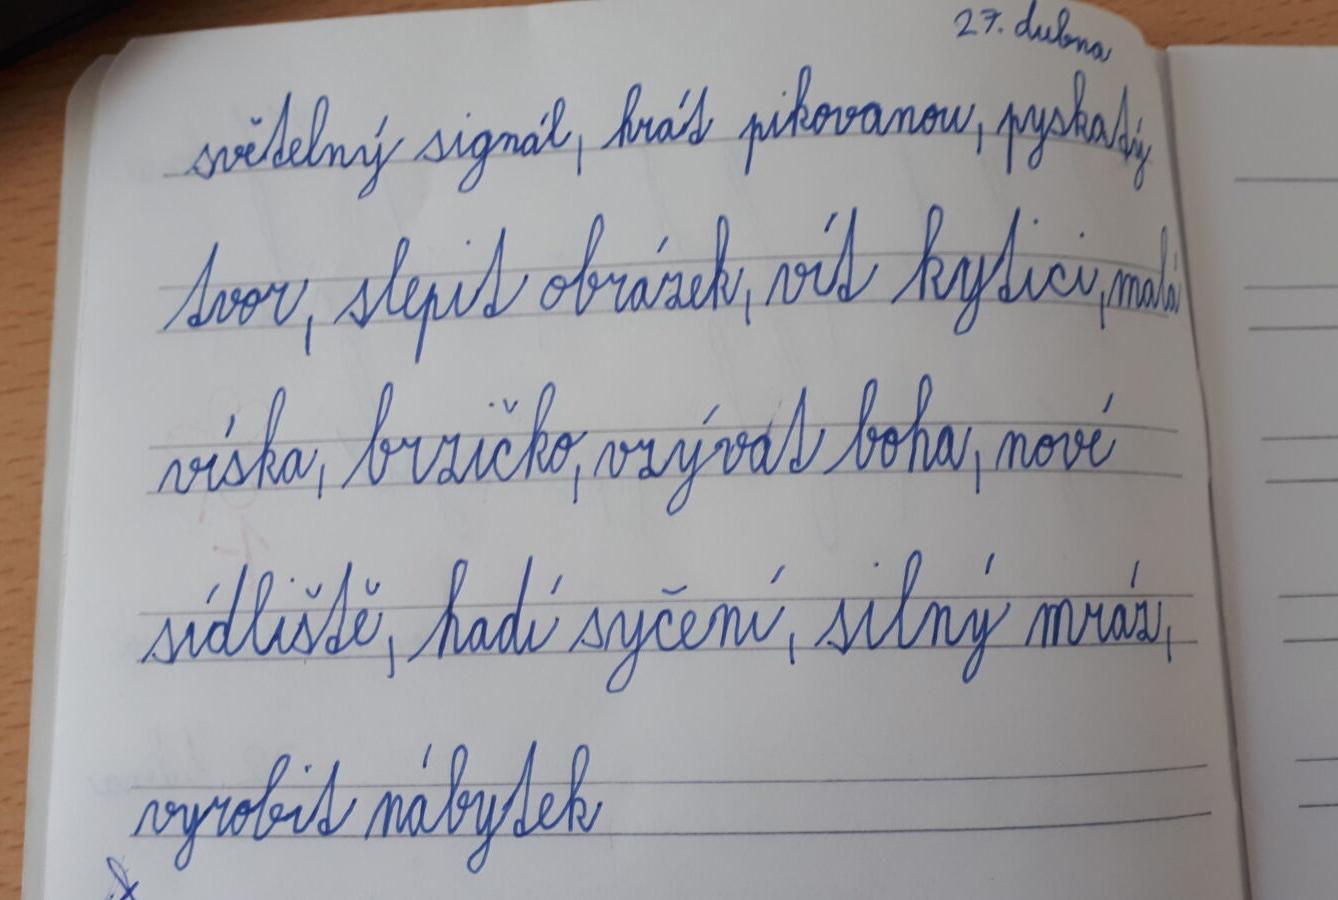 27. dubna
světelný signál, hrát pikovanou, pyskatý
tvor, slepit obrázek, vít kytici, malá
víska, brzičko, vzývat boha, nové
sídliště, hadí syčení, silný mráz,
vyrobit nábytek